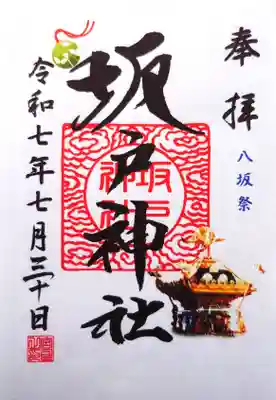 奉拝
八坂祭
坂戸神社
坂戸神社
令和七年七月三十日